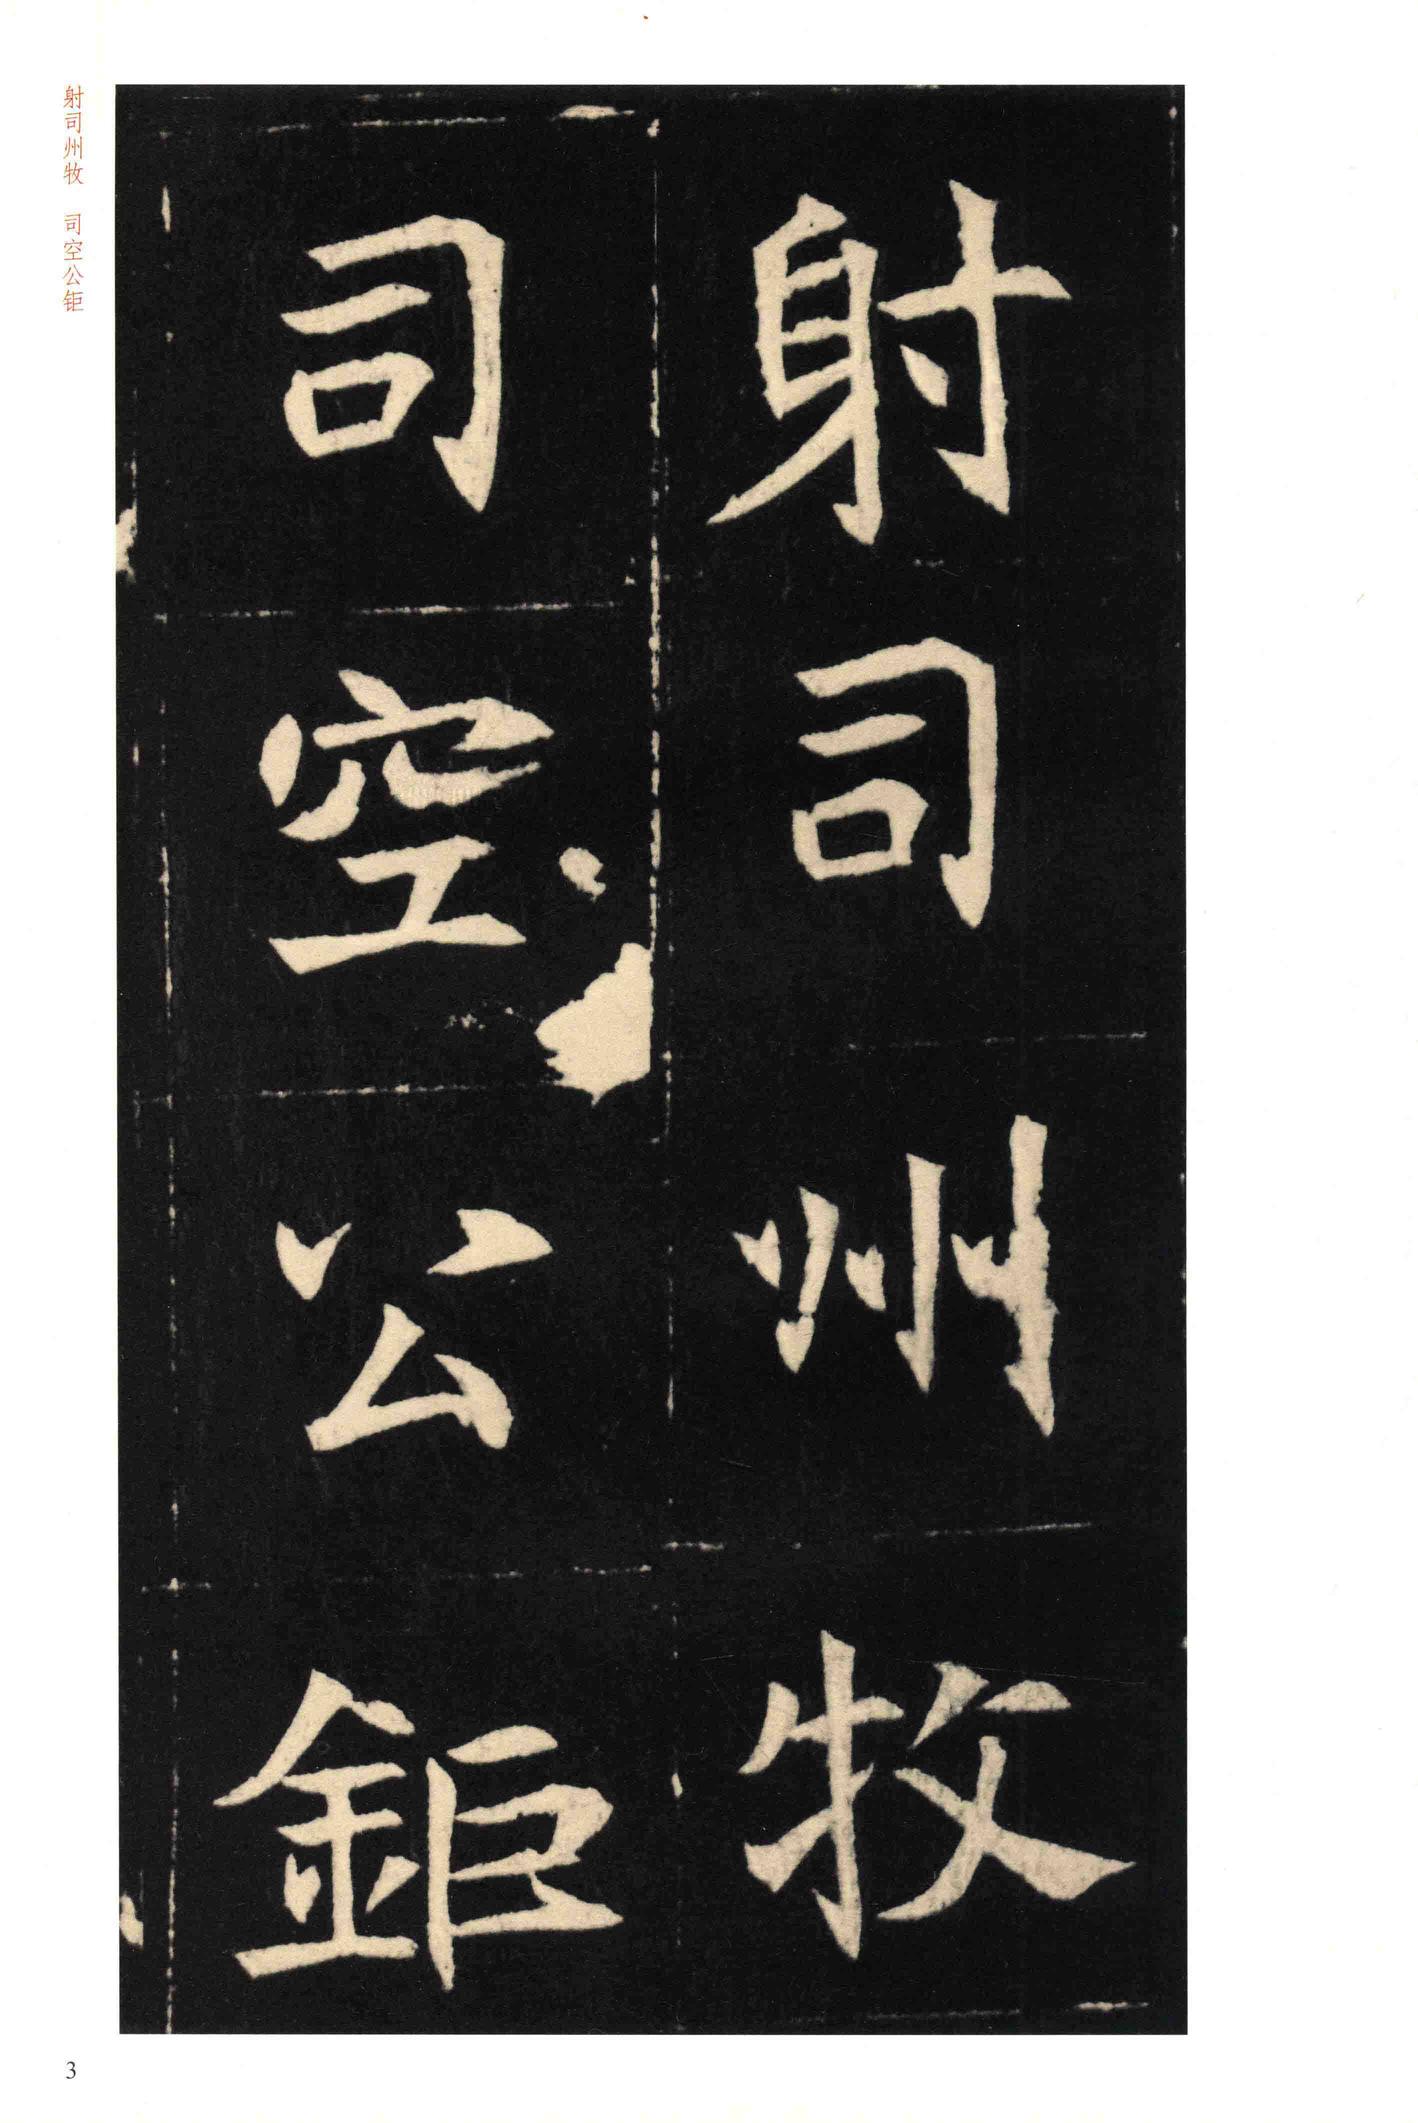 射司州牧
司空公鉅
射司州牧 司空公钜
3